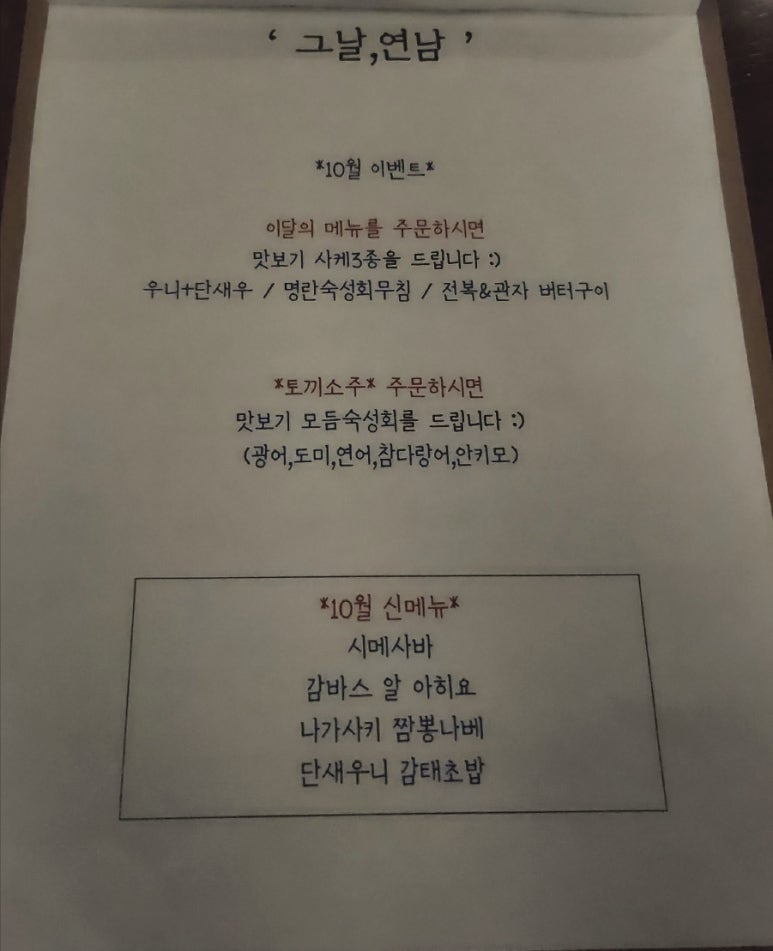 ‘ 그날,연남 ’
*10월 이벤트*
이달의 메뉴를 주문하시면
맛보기 사케3종을 드립니다 :)
우니+단새우 / 명란숙성회무침 / 전복&관자 버터구이
*토끼소주* 주문하시면
맛보기 모듬숙성회를 드립니다 :)
(광어,도미,연어,참다랑어,안키모)
*10월 신메뉴*
시메사바
감바스 알 아히요
나가사키 짬뽕나베
단새우니 감태초밥